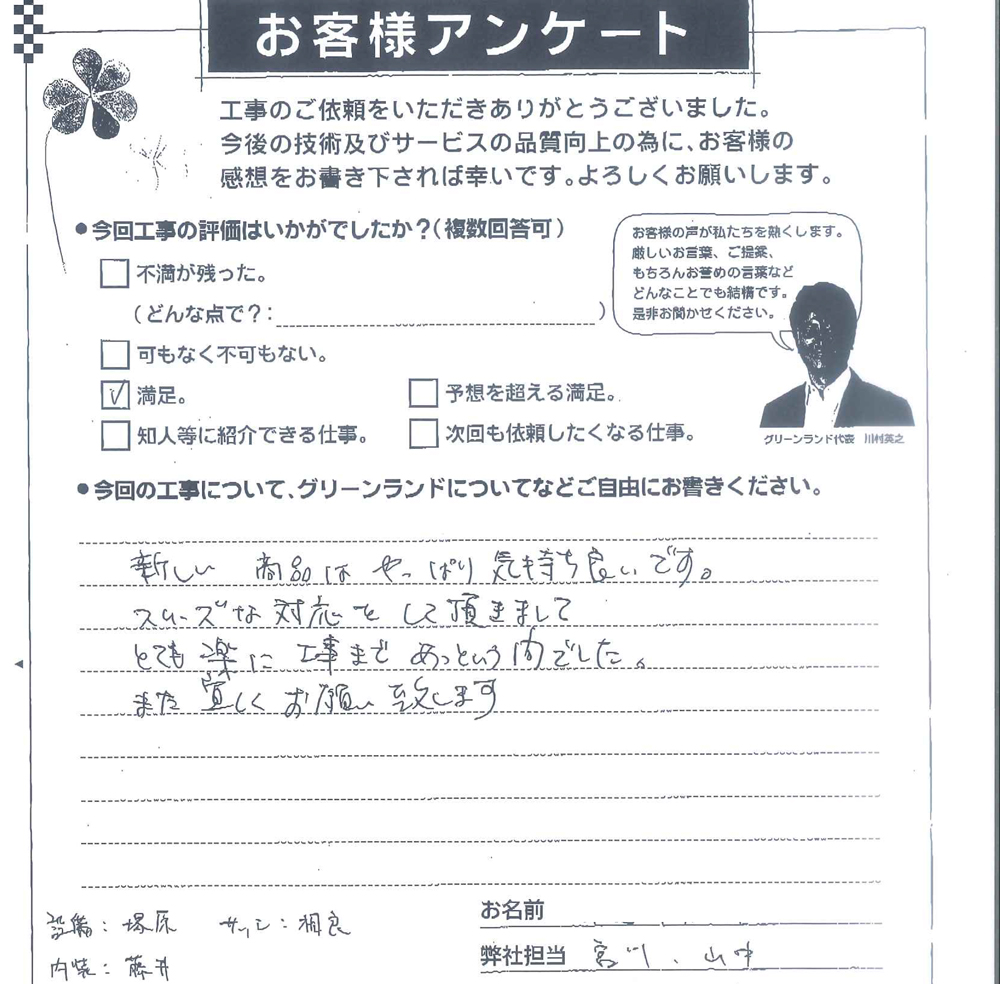 お客様アンケート
工事のご依頼をいただきありがとうございました。
今後の技術及びサービスの品質向上の為に、お客様の
感想をお書き下されば幸いです。よろしくお願いします。
●今回工事の評価はいかがでしたか？（複数回答可）
不満が残った。
（どんな点で？：）
可もなく不可もない。
満足。
予想を超える満足。
知人等に紹介できる仕事。
次回も依頼したくなる仕事。
お客様の声が私たちを熱くします。
厳しいお言葉、ご提案、
もちろんお誉めの言葉など
どんなことでも結構です。
是非お聞かせください。
グリーンランド代表 川村英之
●今回の工事について、グリーンランドについてなどご自由にお書きください。
新しい 商品は やっぱり 気持ち良いです。
スムーズな 対応を して頂きまして
とても 楽に 工事まで あっという間でした。
また 宜しく お願い 致します
設備：塚原 サッシ：相良
内装：藤井
お名前
弊社担当 宮川、山中